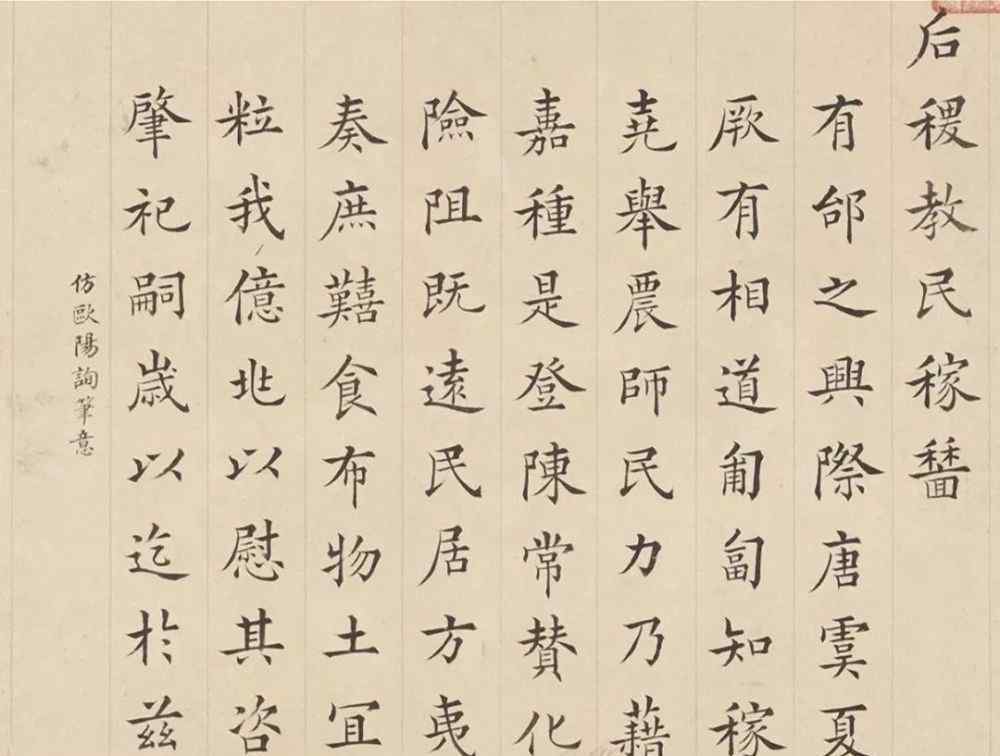 后稷教民稼穡
有邰之興際唐虞夏
厥有相道匍匐知稼
堯舉農師民力乃藉
嘉種是登陳常贊化
險阻既遠民居方夷
奏庶囏食布物土冝
粒我億兆以慰其咨
肇祀嗣歲以迄於茲
仿歐陽詢筆意